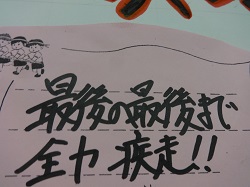 最後の最後まで
全力疾走!!